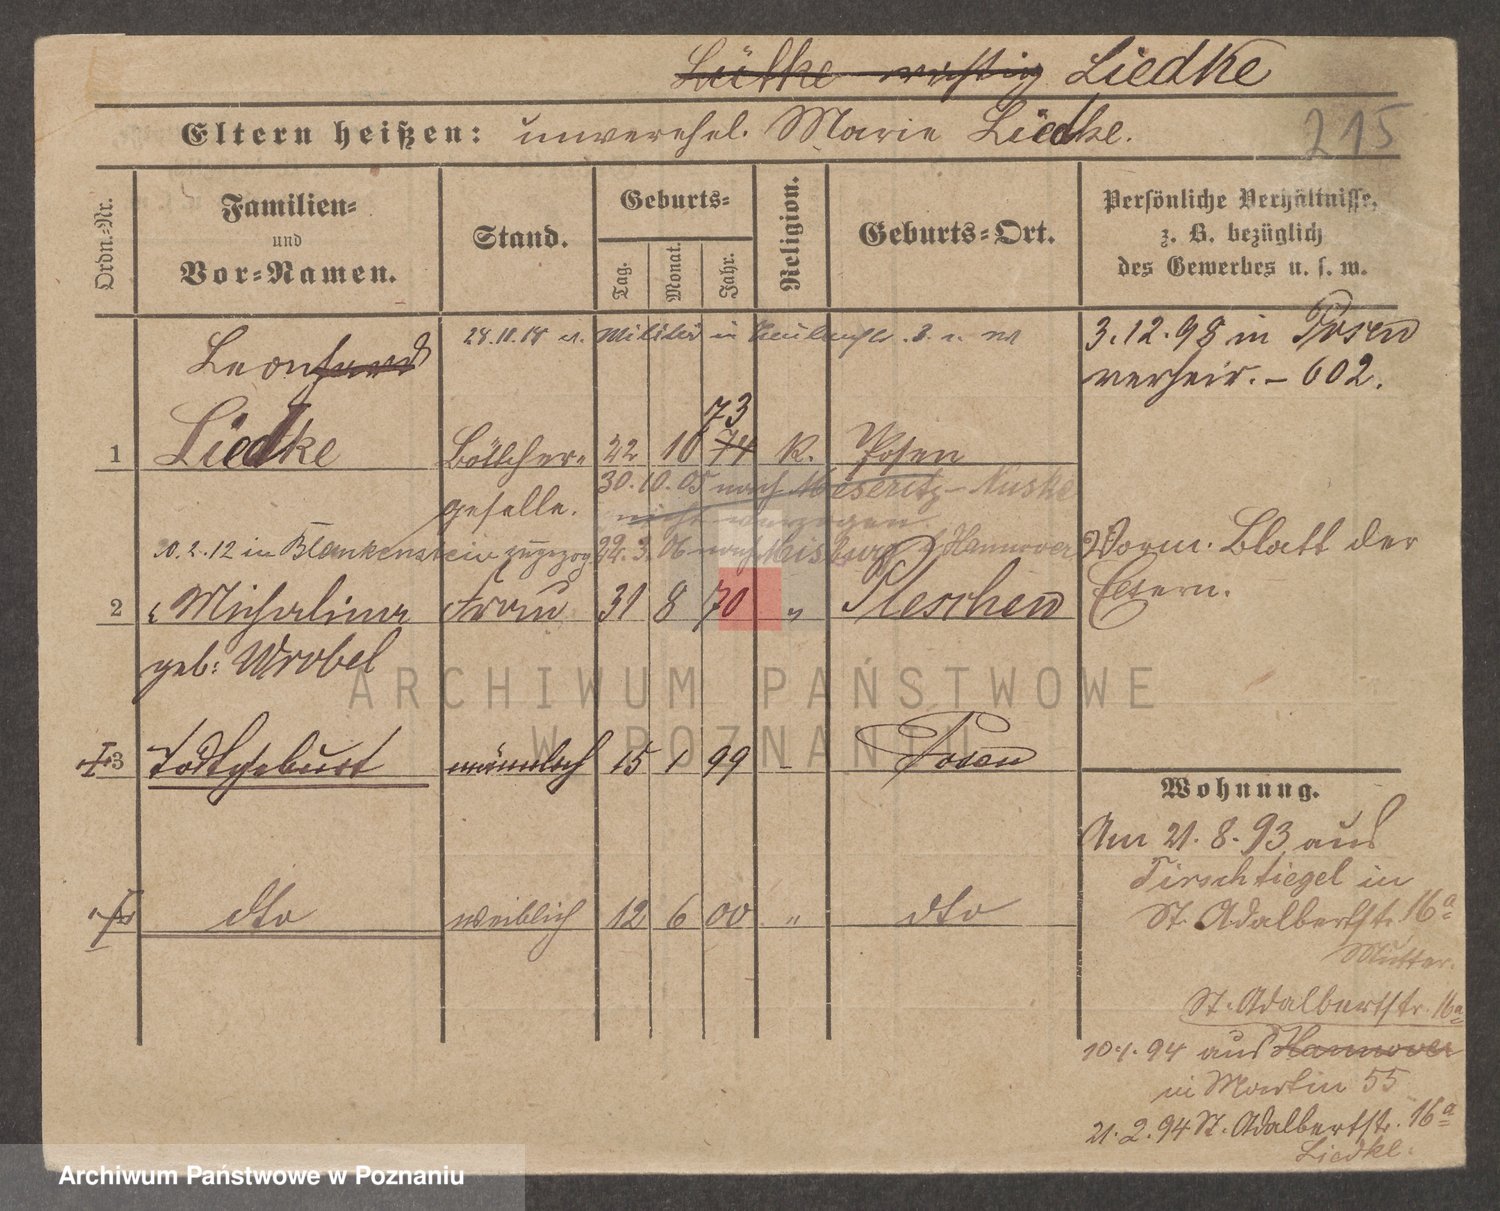 Lütke richtig Liedke
Eltern heißen: unverehel. Marie Liedke.
215
Ordn.-Nr.
Familien-
und
Vor-Namen.
Stand.
Geburts-
Tag.
Monat.
Jahr.
Religion.
Geburts-Ort.
Persönliche Verhältnisse,
z. B. bezüglich
des Gewerbes u. s. w.
Leonhard
Militär in
3.12.98 in Posen
verheir. - 602.
73
1 Liedke Böttcher- 22 10 74 k. Posen
geselle.
30.10.05 nach Meseritz-Kuske
nicht verzogen.
10.2.12 in Blankenstein zugezog. 22.3.06 nach Misburg b/ Hannover
Vorm. Blatt der
Eltern.
2 Michalina Frau 31 8 70 " Pleschen
geb: Wrobel
ARCHIWUM PAŃSTWOWE
W POZNANIU
3 Todtgeburt männlich 15 1 99 - Posen
Wohnung.
Am 21.8.93 aus
Tirschtiegel in
St. Adalbertstr. 16a
Mutter.
dto weiblich 12 6 00 " dto
St. Adalbertstr. 16a
10.1.94 aus Hannover
in Martin 55
21.2.94 St. Adalbertstr. 16a
Liedke.
Archiwum Państwowe w Poznaniu